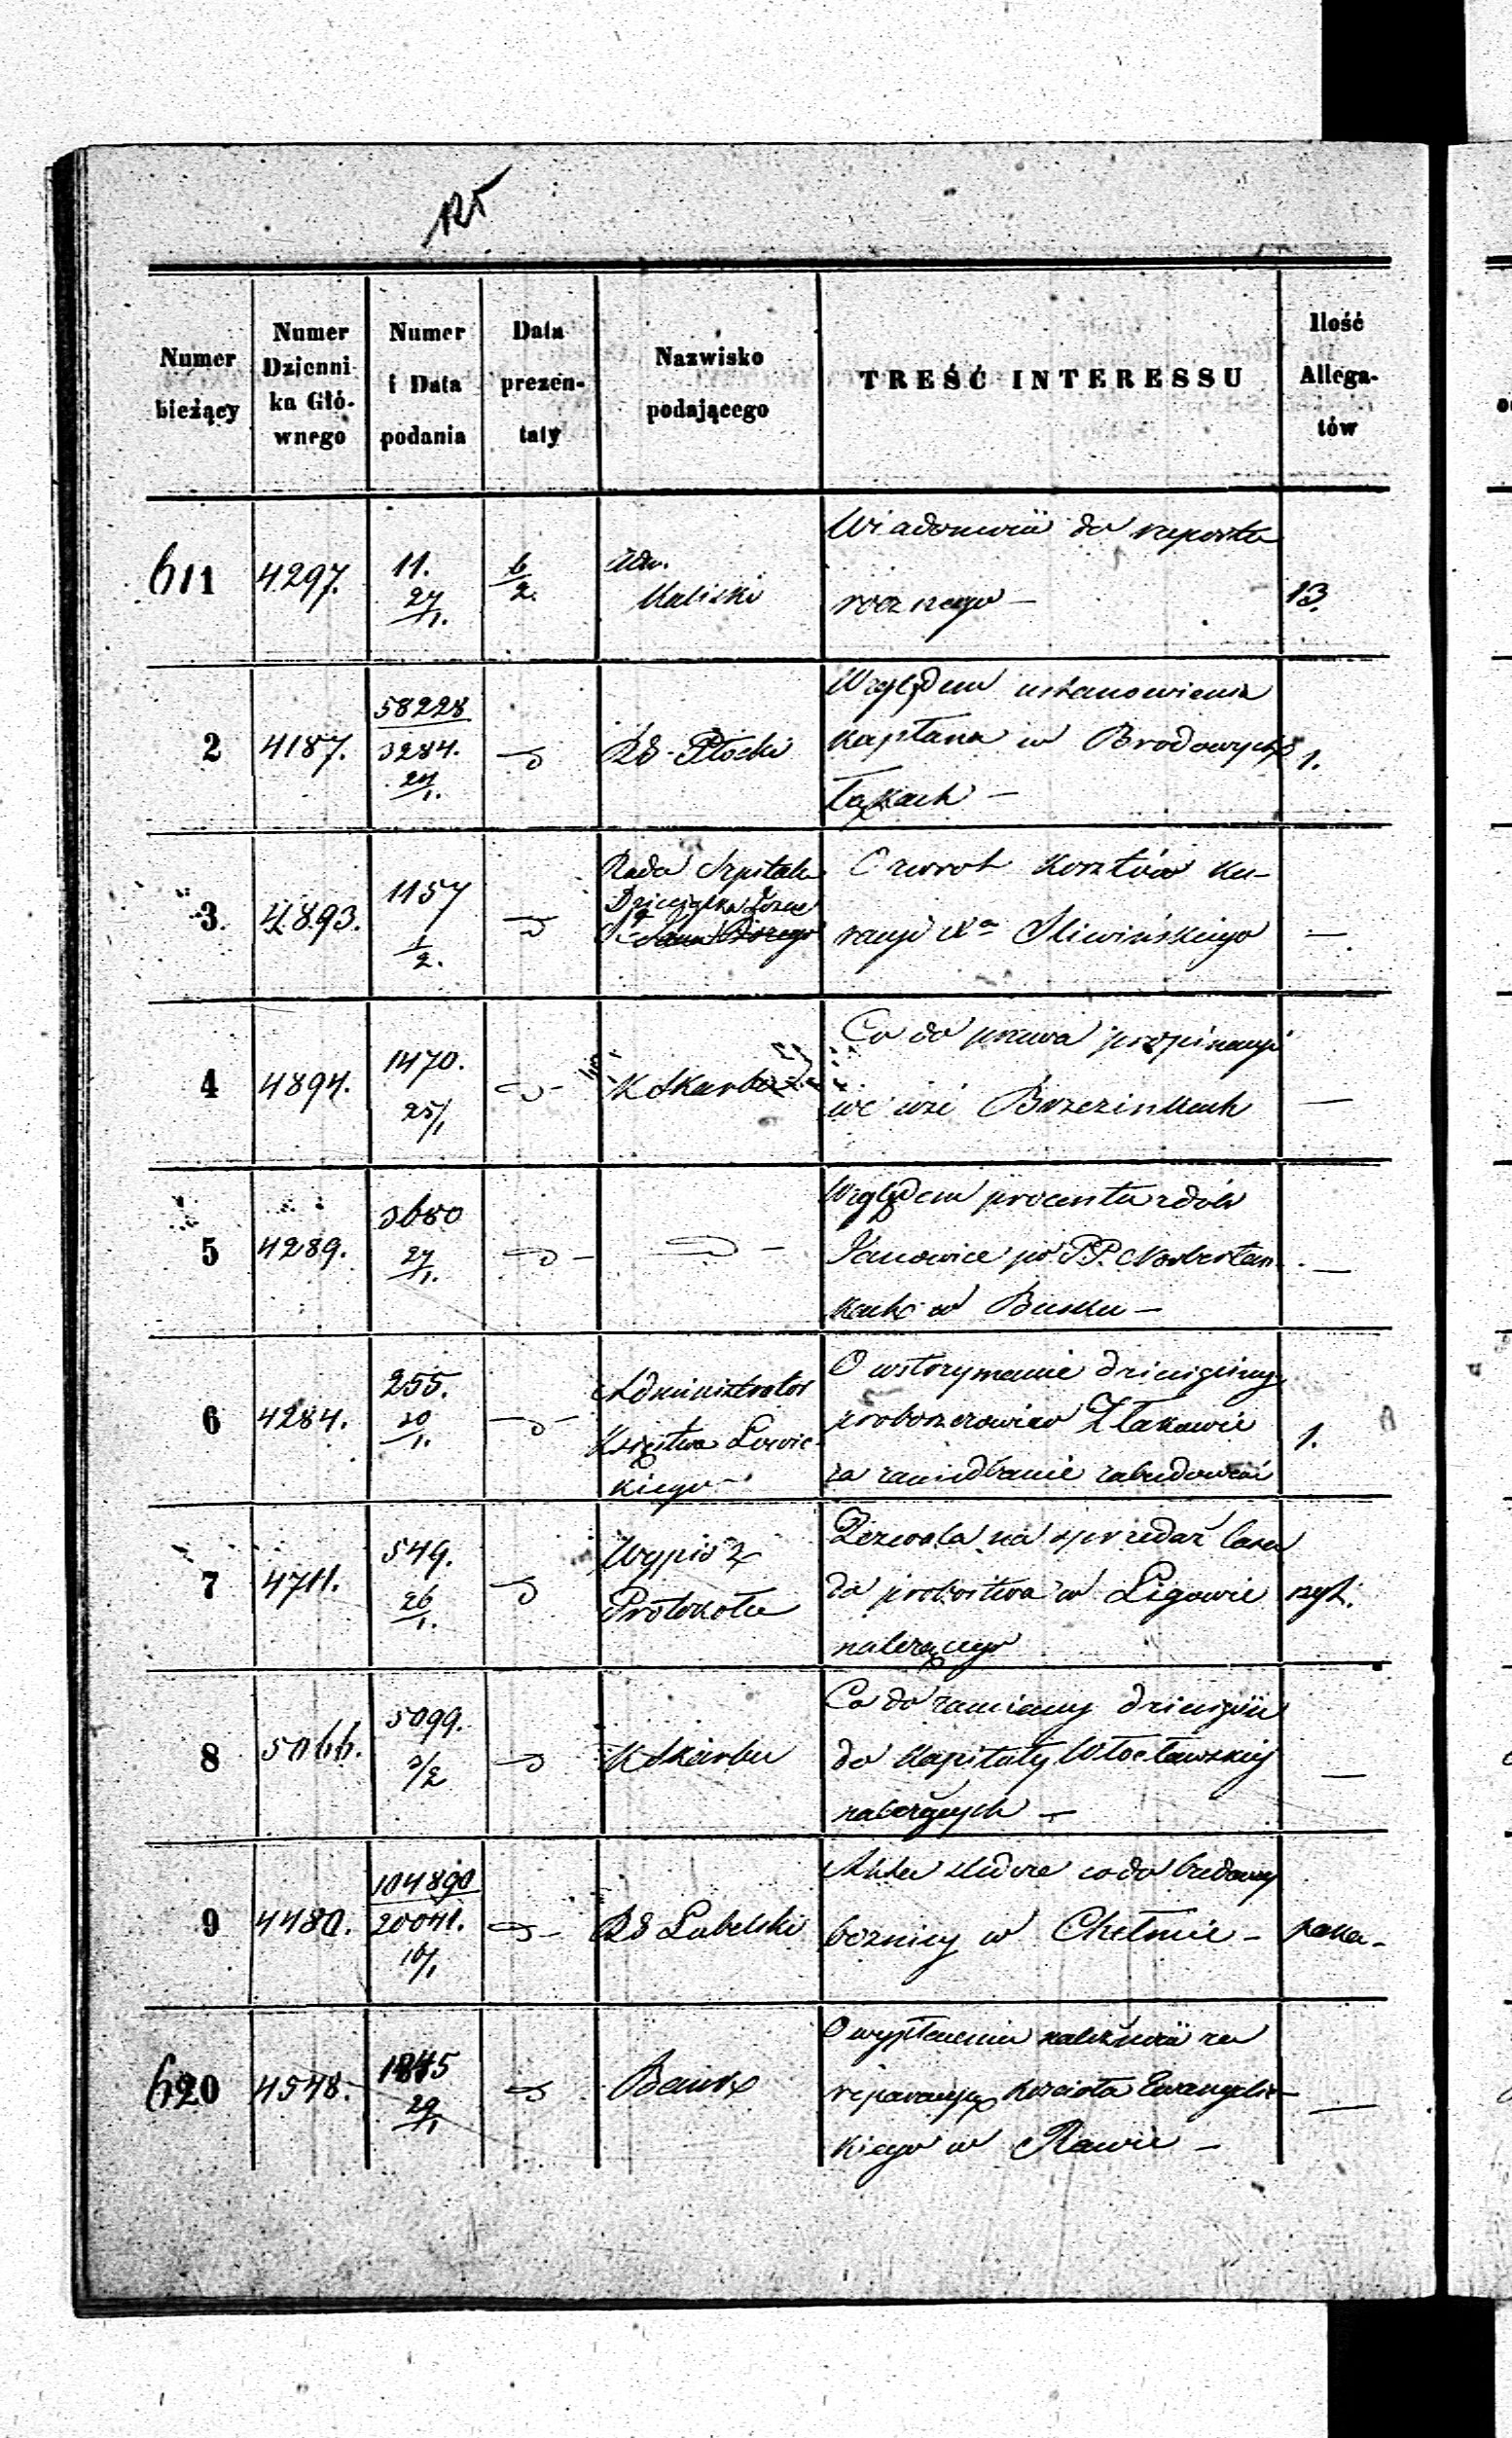 125
Numer bieżący
Numer Dzienni- ka Głó- wnego
Numer i Data podania
Data prezen- taty
Nazwisko podającego
TREŚĆ INTERESSU
Ilość Allega- tów
611 4297. 11. 27/1. 6/2. Adm. Kaliski
Wiadomości do raportu
rocznego — 13.
2 4187. 58228/3284. 27/1. RG. Płocki
Względem ustanowienia
kapłana w Brodowych 1.
Łąkach —
3. 4893. 1157 1/2.
Rada Szpitala
Dzieciątka Jezus
O zwrot kosztów ku-
racyi Xa Śliwińskiego —
4 4894. 1470. 25/1 K Skarbu
Co do prawa propinacyi
we wsi Brzezinkach —
5 4289. 3680 27/1.
Względem procentu z dóbr
Janowice po PP. Norbertan-
kach w Busku — —
6 4284. 255. 20/1.
Administrator
Księstwa Łowic-
kiego —
O wstrzymanie dziesięciny
proboszczowi w Złakowie 1.
za zaniedbanie zabudowań
7 4711. 549. 26/1.
Wypis z
Protokołu
Zezwala na sprzedaż lasu
do probostwa w Ligowie
należącego
8 5066. 5099. 3/2 K Skarbu
Co do zamiany dziesięcin
do Kapituły Włocławskiej
należących — —
9 4480. 104890/20041. 16/1 RG Lubelski
Akta co do budowy
bożnicy w Chełmie — paka-
620 4548. 1845 29/1 Bank
O wypłacenie należności za
reparacyę kościoła Ewangelic-
kiego w Rawie — —